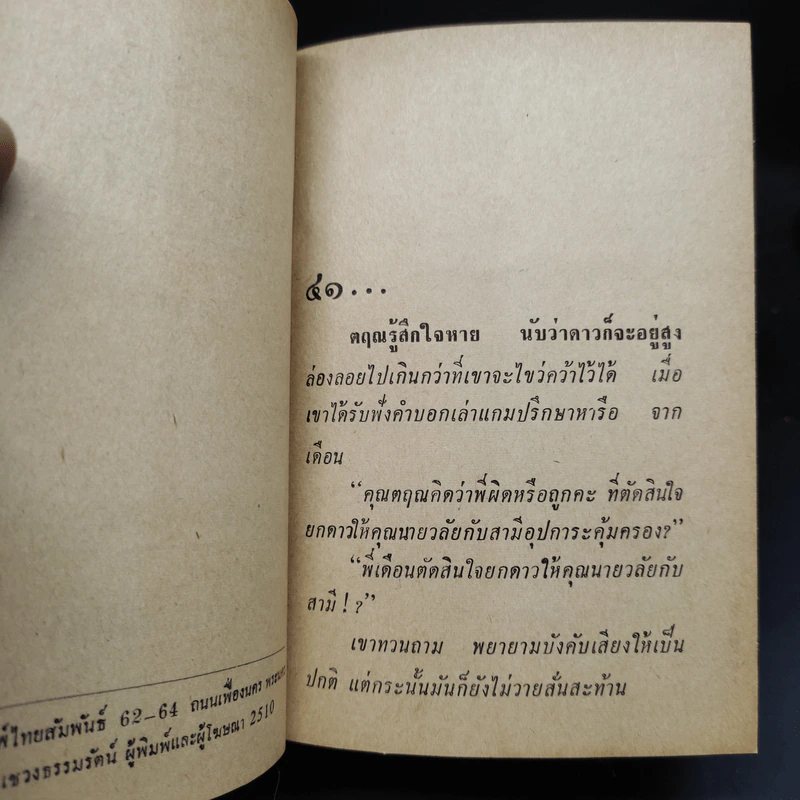 พ์ไทยสัมพันธ์ 62-64 ถนนเฟื่องนคร
เชวงธรรมรัตน์ ผู้พิมพ์และผู้โฆษณา 2510
๔๑...
ตฤณรู้สึกใจหาย นับว่าดาวก็จะอยู่สูง
ล่องลอยไปเกินกว่าที่เขาจะไขว่คว้าไว้ได้ เมื่อ
เขาได้รับฟังคำบอกเล่าแกมปรึกษาหารือ จาก
เดือน
“คุณตฤณคิดว่าพี่ผิดหรือถูกคะ ที่ตัดสินใจ
ยกดาวให้คุณนายวลัยกับสามีอุปการะคุ้มครอง?”
“พี่เดือนตัดสินใจยกดาวให้คุณนายวลัยกับ
สามี!?”
เขาทวนถาม พยายามบังคับเสียงให้เป็น
ปกติ แต่กระนั้นมันก็ยังไม่วายสั่นสะท้าน